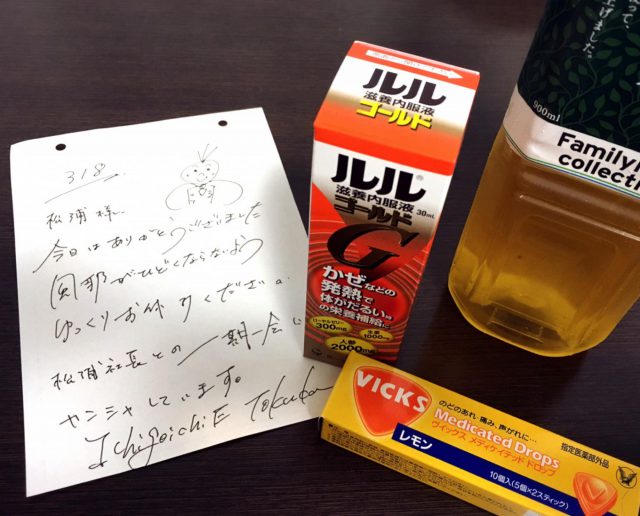 318
松浦様、
今日はありがとうございました
風邪がひどくならないよう
ゆっくりお休み下ください。
松浦社長との一期一会に
カンシャしています。
IchigoichiE
ルル
滋養内服液
ゴールド
ルル
滋養内服液
ゴールド 30mL
G
かぜなどの
発熱で
体がだるい時
の栄養補給に
ローヤルゼリー 300mg
生薬 1000mg
人参 2000mg
って、
上げました。
900ml
FamilyM
collecti
VICKS
のどのあれ・痛み、声がれに…
Medicated Drops
ヴイックス メディケイテッド ドロップ
レモン
指定医薬部外品
10個入(5個×2スティック)